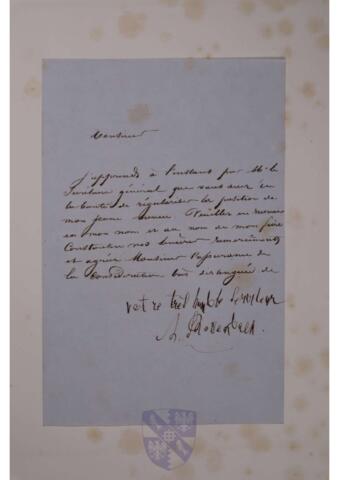 Monsieur
J'apprends à l'instant par Mr le
général que vous avez eu
la bonté de régulariser la position de
mon jeune neveu. Veuillez en recevoir
en mon nom et au nom de mon frère
Constantin nos sincères remerciments
et agréer Monsieur l'assurance de
la consideration très distinguée de
votre très humble serviteur